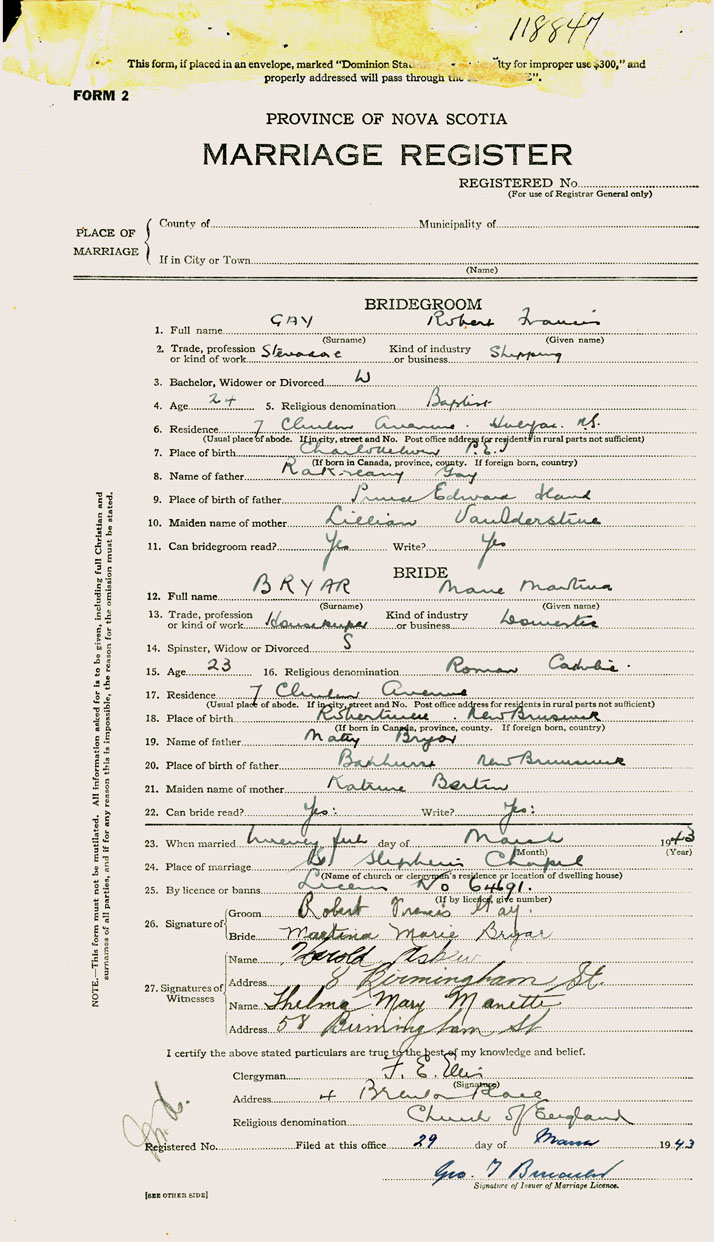 118847
This form, if placed in an envelope, marked "Dominion Stat lty for improper use $300," and
properly addressed will pass through the
FORM 2
PROVINCE OF NOVA SCOTIA
MARRIAGE REGISTER
REGISTERED No.
(For use of Registrar General only)
PLACE OF MARRIAGE
County of Municipality of
If in City or Town
(Name)
BRIDEGROOM
1. Full name GAY Robert Francis
(Surname) (Given name)
2. Trade, profession or kind of work Kind of industry or business Shipping
3. Bachelor, Widower or Divorced W
4. Age 24 5. Religious denomination Baptist
6. Residence 7 Avenue. Halifax. N.S.
(Usual place of abode. If in city, street and No. Post office address for residents in rural parts not sufficient)
7. Place of birth Charlottetown P.E.I
(If born in Canada, province, county. If foreign born, country)
8. Name of father Gay
9. Place of birth of father Prince Edward Island
10. Maiden name of mother Lillian VanIderstine
11. Can bridegroom read? Yes Write? Yes
BRIDE
12. Full name BRYAR Marie Martina
(Surname) (Given name)
13. Trade, profession or kind of work Housekeeper Kind of industry or business Domestic
14. Spinster, Widow or Divorced S
15. Age 23 16. Religious denomination Roman Catholic.
17. Residence 7 Avenue
(Usual place of abode. If in city, street and No. Post office address for residents in rural parts not sufficient)
18. Place of birth Robertville. New Brunswick
(If born in Canada, province, county. If foreign born, country)
19. Name of father Bryar
20. Place of birth of father Bathurst New Brunswick
21. Maiden name of mother Bertin
22. Can bride read? Yes: Write? Yes:
23. When married day of March 1943
(Month) (Year)
24. Place of marriage St Stephens Chapel
(Name of church or clergyman's residence or location of dwelling house)
25. By licence or banns Licence No 64691.
(If by licence, give number)
26. Signature of
Groom Robert Francis Gay.
Bride Martina Marie Bryar
27. Signatures of Witnesses
Name Harold Askew
Address 8 Birmingham St.
Name Thelma Mary Manette
Address 58 Birmingham St
I certify the above stated particulars are true to the best of my knowledge and belief.
Clergyman F. E. Ellis
(Signature)
Address 4 Place
Religious denomination Church of England
Registered No. Filed at this office 29 day of March 1943
Geo. T
Signature of Issuer of Marriage Licence.
[SEE OTHER SIDE]
NOTE.—This form must not be mutilated. All information asked for is to be given, including full Christian and
surnames of all parties, and if for any reason this is impossible, the reason for the omission must be stated.